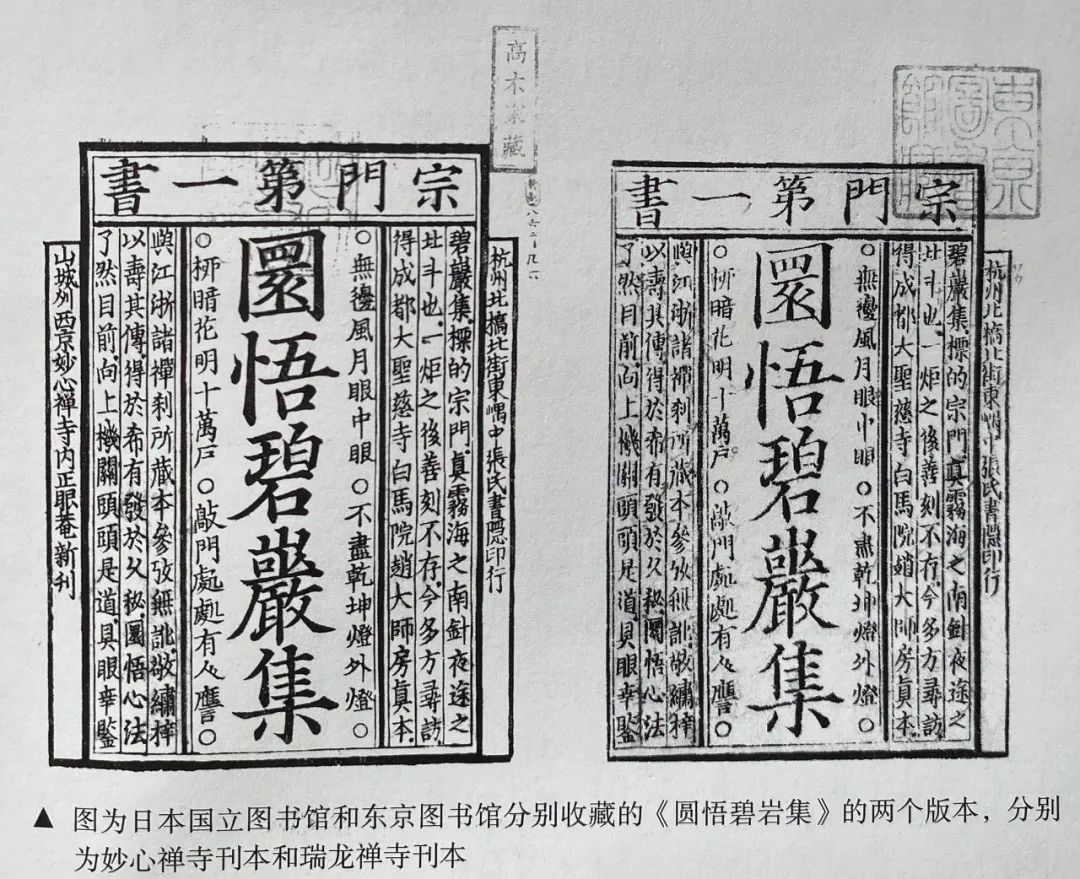 高木家藏
宗門第一書
杭州北橋北街東嵎中張氏書隱印行
碧巖集標的宗門眞霧海之南針夜途之
北斗也一炬之後善刻不存今多方尋訪
得成都大聖慈寺白馬院趙大師房真本
○無邊風月眼中眼○不盡乾坤燈外燈○
圜悟碧巖集
○栁暗花明十萬戸○敲門處處有人譍○
與江浙諸禪刹所藏本參攷無訛敬繡梓
以壽其傳得於希有發於久秘圜悟心法
了然目前向上機關頭頭是道具眼幸鑒
山城州西京妙心禪寺内正眼菴新刊
東京
圖書
館藏
宗門第一書
杭州北橋北街東嵎中張氏書隱印行
碧巖集標的宗門眞霧海之南針夜途之
北斗也一炬之後善刻不存今多方尋訪
得成都大聖慈寺白馬院趙大師房真本
○無邊風月眼中眼○不盡乾坤燈外燈○
圜悟碧巖集
○栁暗花明十萬戸○敲門處處有人譍○
與江浙諸禪刹所藏本參攷無訛敬繡梓
以壽其傳得於希有發於久秘圜悟心法
了然目前向上機關頭頭是道具眼幸鑒
▲ 图为日本国立图书馆和东京图书馆分别收藏的《圆悟碧岩集》的两个版本，分别
为妙心禅寺刊本和瑞龙禅寺刊本